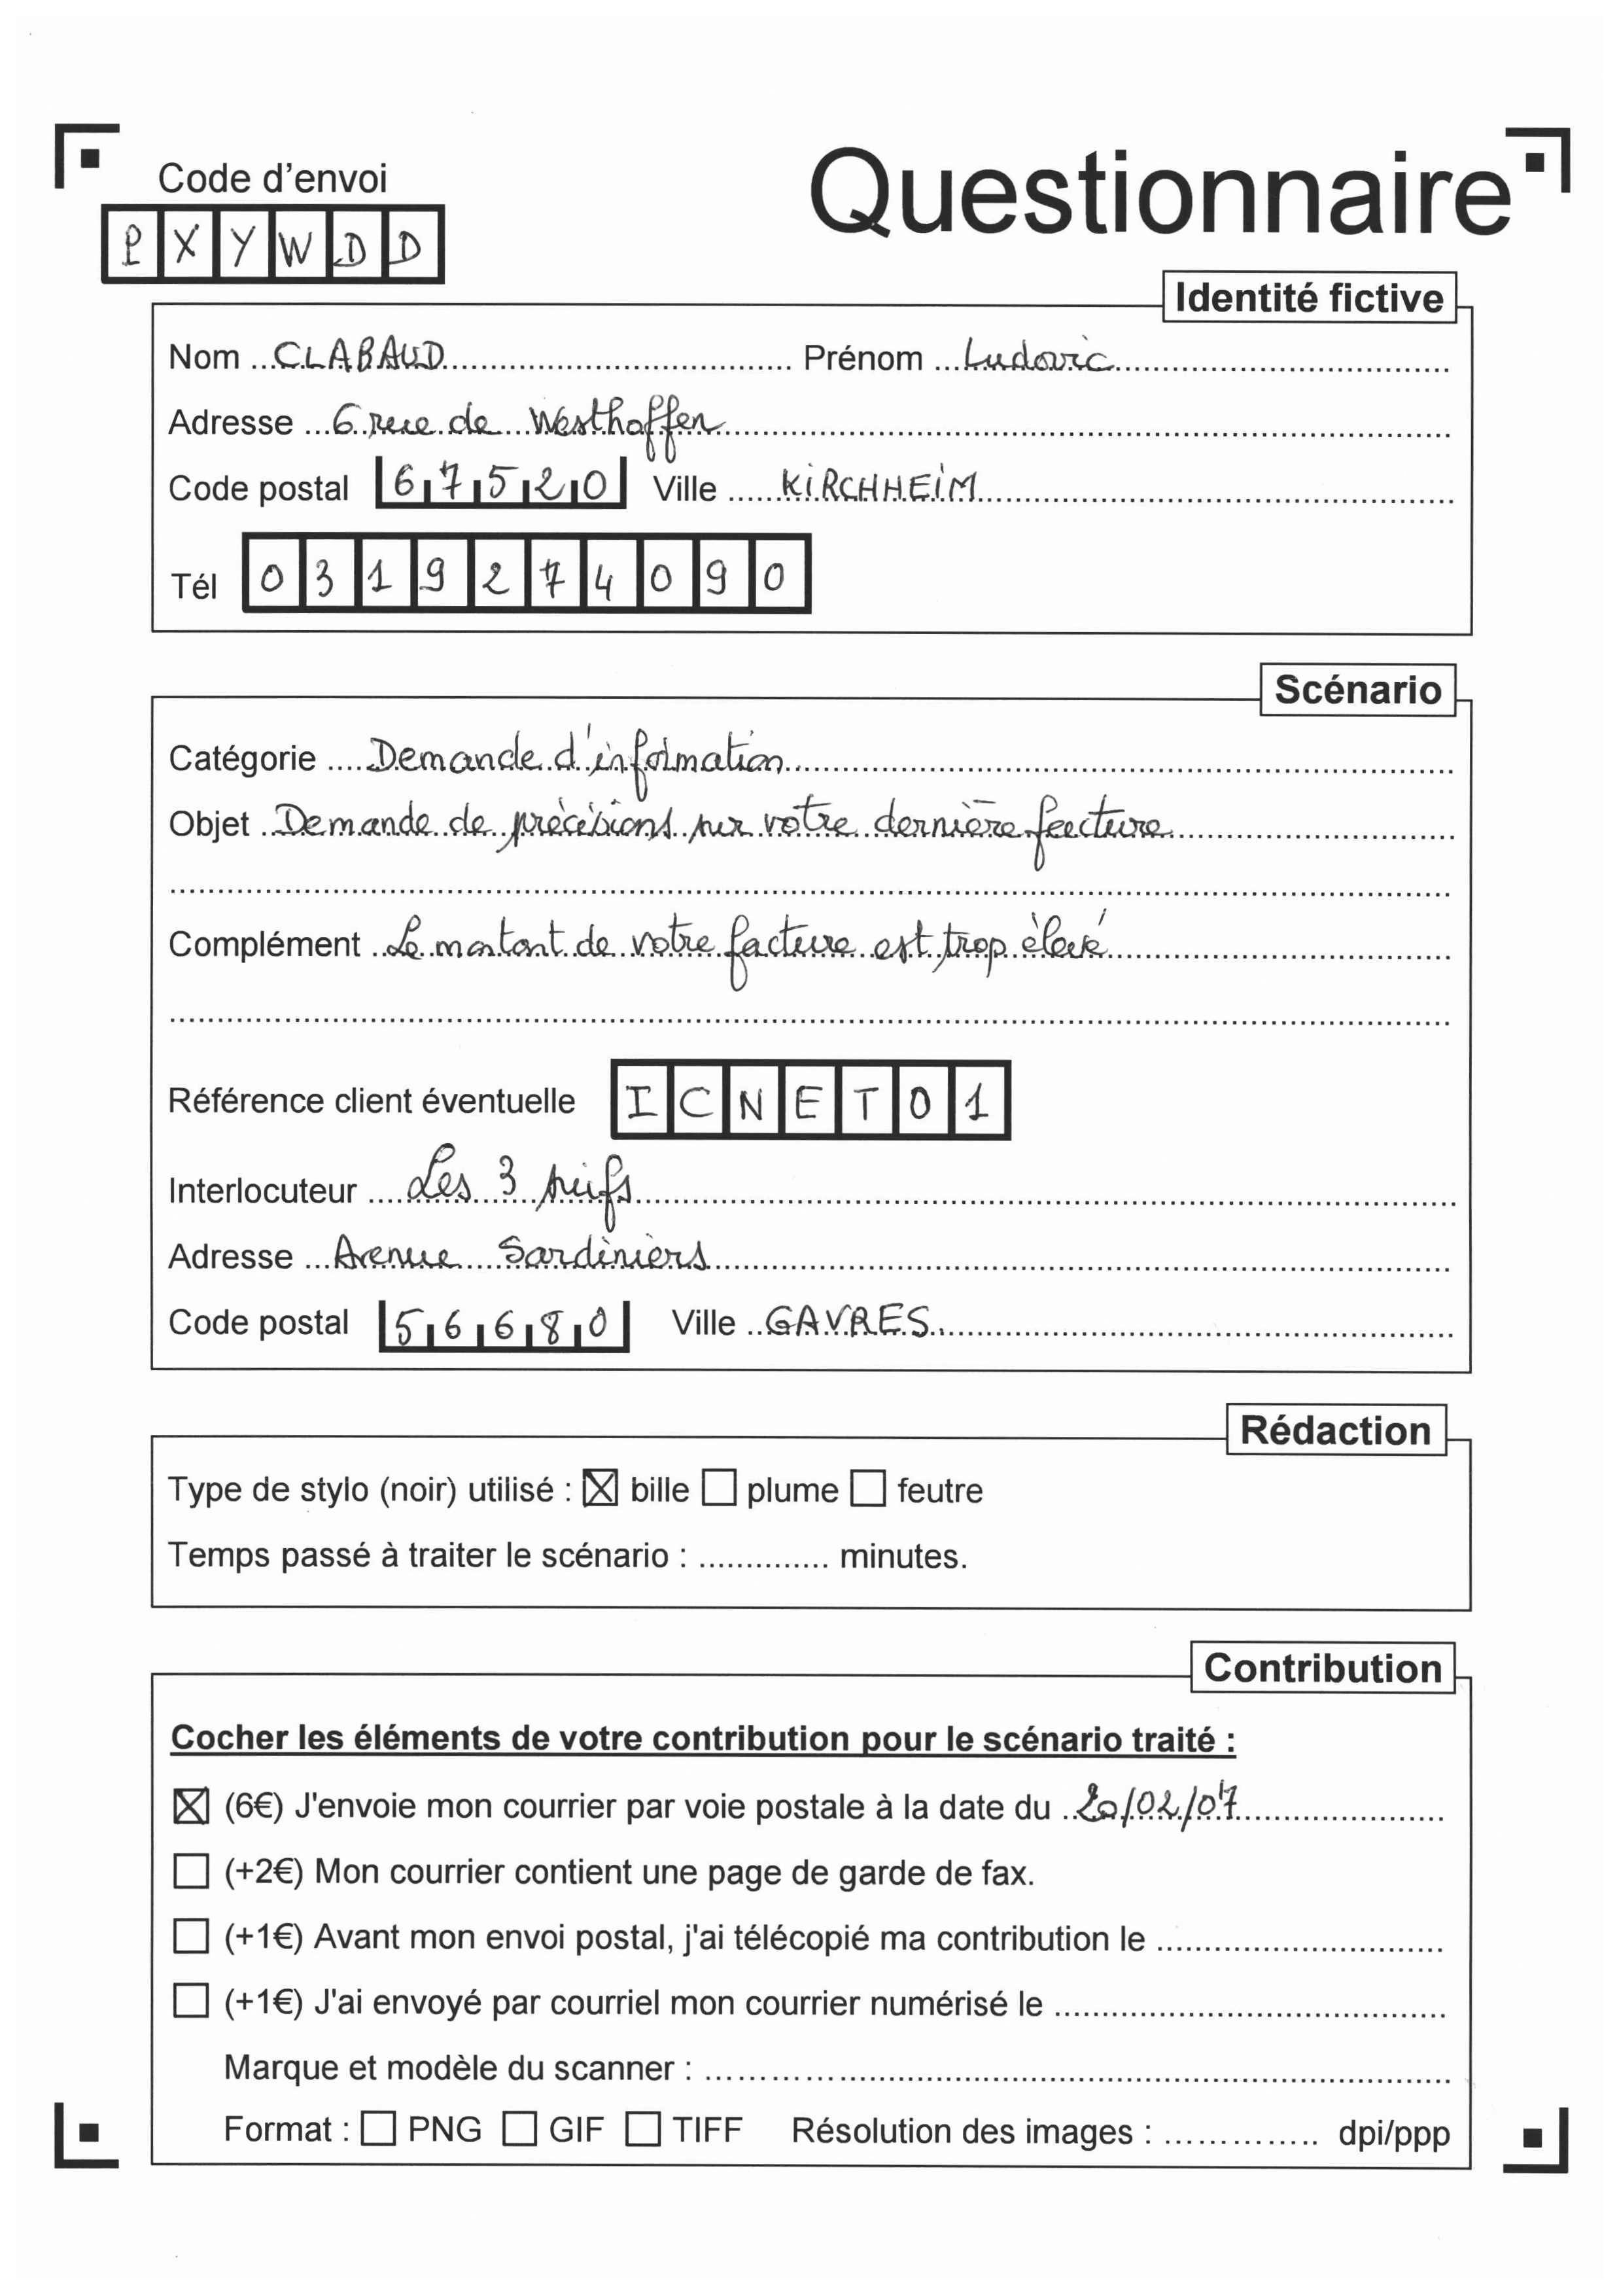 Code d'envoi
Questionnaire
PXYWDD
Identité fictive
Nom CLABAUD Prénom Ludovic
Adresse 6 rue de Westhoffen
Code postal 67520 Ville KIRCHHEIM
Tél 0319274090
Scénario
Catégorie Demande d'information
Objet Demande de précisions sur votre dernière facture
Complément Le montant de votre facture est trop élevé
Référence client éventuelle ICNET01
Interlocuteur Les 3 puifs
Adresse Avenue Sardiniers
Code postal 56680 Ville GAVRES
Rédaction
Type de stylo (noir) utilisé : ☒ bille ☐ plume ☐ feutre
Temps passé à traiter le scénario : .............. minutes.
Contribution
Cocher les éléments de votre contribution pour le scénario traité :
☒ (6€) J'envoie mon courrier par voie postale à la date du 20/02/07
☐ (+2€) Mon courrier contient une page de garde de fax.
☐ (+1€) Avant mon envoi postal, j'ai télécopié ma contribution le
☐ (+1€) J'ai envoyé par courriel mon courrier numérisé le
Marque et modèle du scanner :
Format : ☐ PNG ☐ GIF ☐ TIFF Résolution des images : .............. dpi/ppp